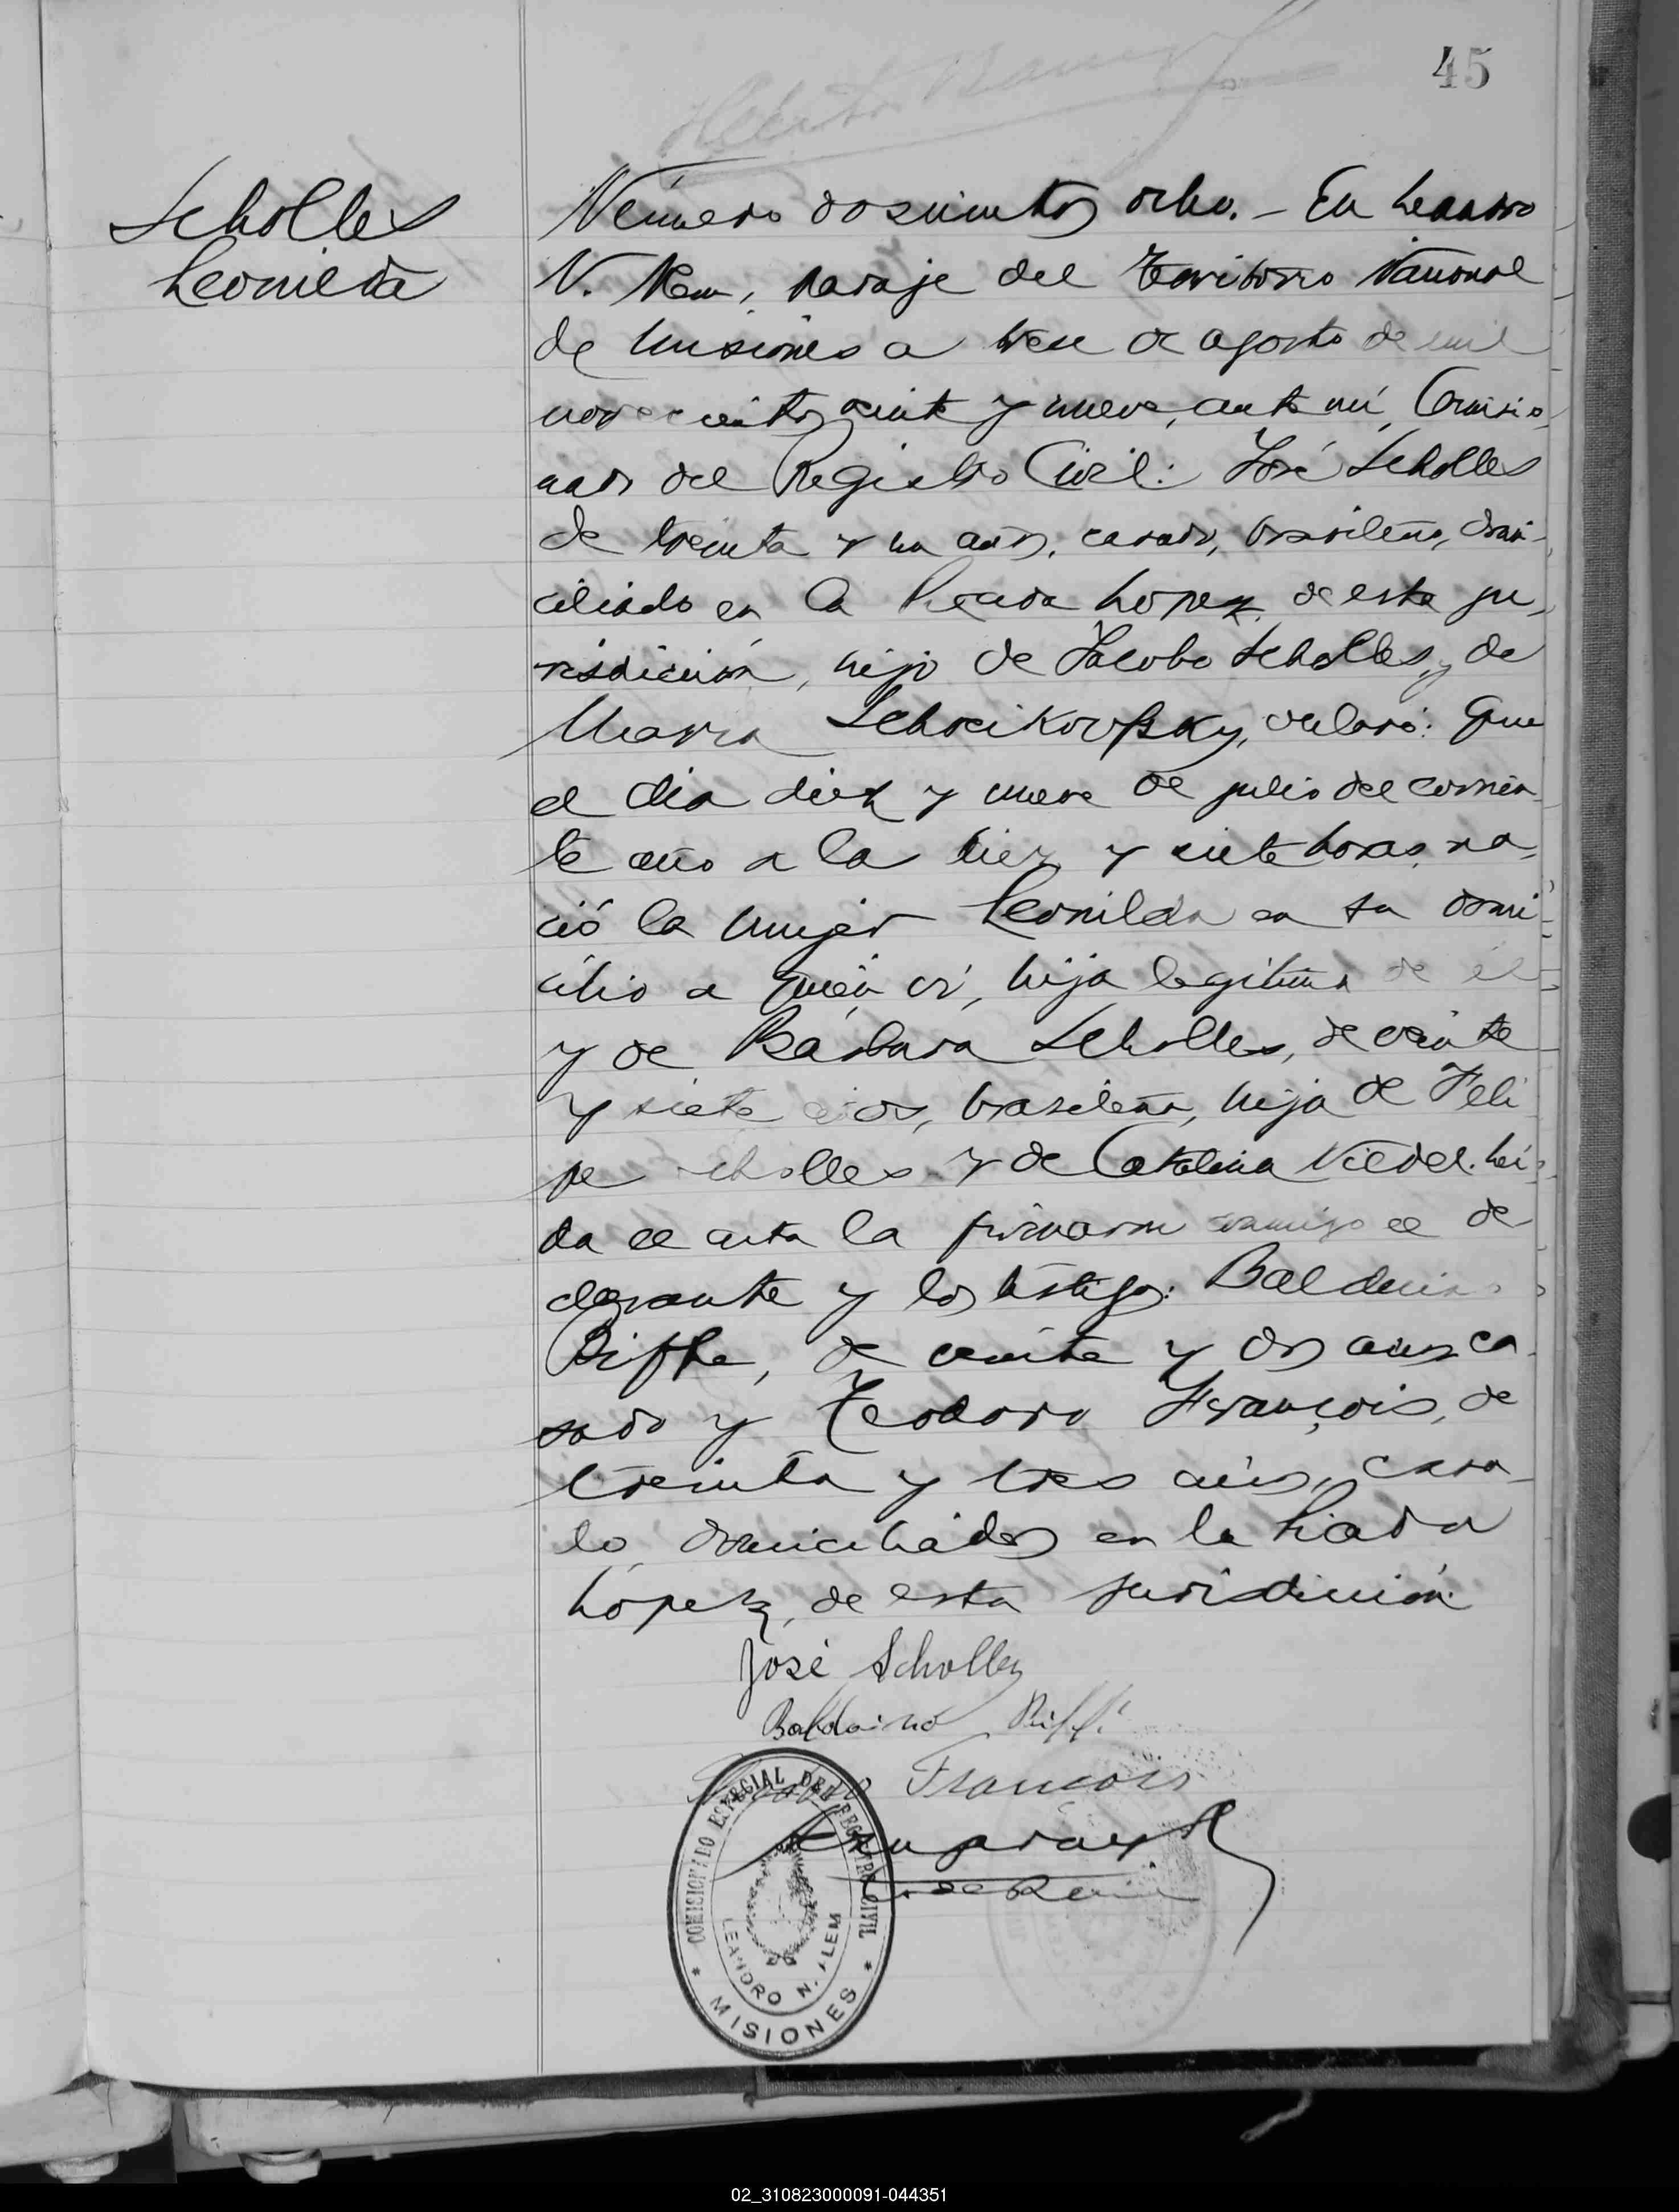 45
Scholles
Leonilda
Número doscientos ocho. - En Leandro
N. Alem, paraje del Territorio Nacional
de Misiones a trece de agosto de mil
novecientos veinte y nueve, ante mí, Comisio-
nado del Registro Civil: José Scholles
de treinta y un años, casado, brasileño, domi-
ciliado en la Picada Lopez, de esta ju-
risdicción, hijo de Jacobo Scholles y de
Maria declaró: Que
el dia diez y nueve de julio del corrien-
te año a la diez y siete horas, na-
ció la mujer Leonilda en su domi-
cilio a quien ví, hija legítima de él
y de Bárbara Scholles, de veinte
y siete años, brasileña, hija de Feli
pe Scholles y de Catalina Viedel. Leí-
da el acta la firmaron conmigo el de-
clarante y los testigos: Balduino
de veinte y dos años, ca-
sado y Teodoro François, de
treinta y tres años, casa-
do, domiciliados en la Picada
López, de esta jurisdicción.
José Scholles
Balduino
Teodoro François
COMISIONADO ESPECIAL DEL REGISTRO CIVIL
LEANDRO N. ALEM
* MISIONES *
02_310823000091-044351